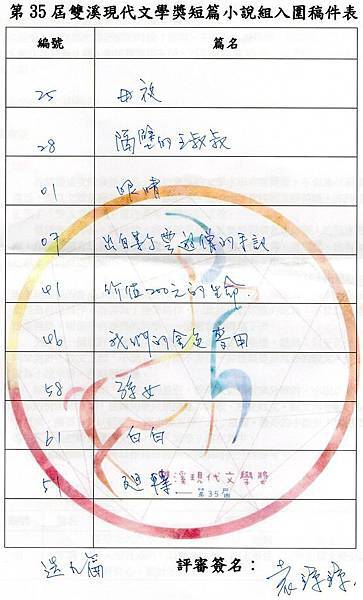 第35屆雙溪現代文學獎短篇小說組入圍稿件表
編號 篇名
25 母校
28 隔壁的王叔叔
01 眼睛
07 出自某丁
41 价值200元的生命.
46 我們的金色
58 孫女
61 白白
51 迴轉
雙溪現代文學獎
第35屆
選九篇 評審簽名：袁瓊瓊